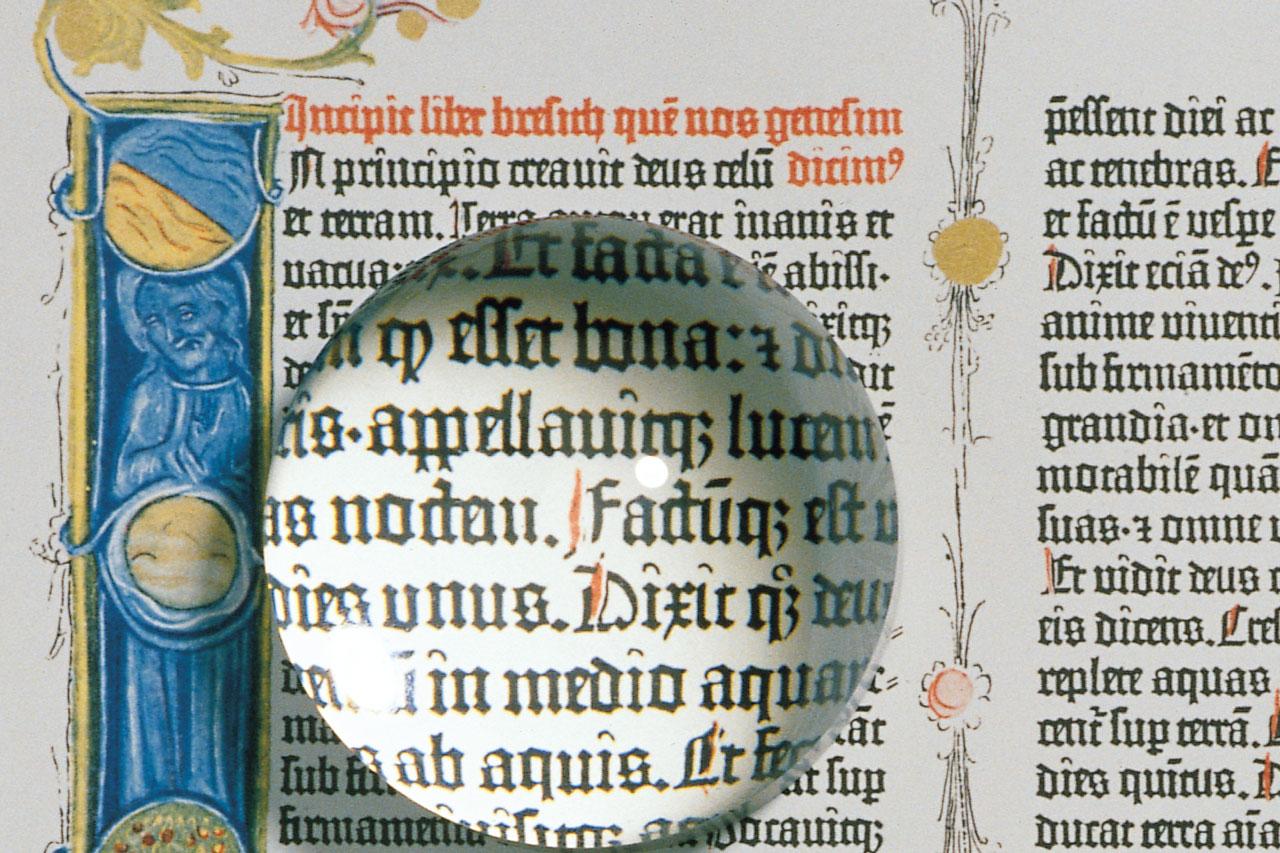 Incipit liber bresith quē nos genesim
N principio creauit deus celū dicimꝰ
et terram. Terra autem erat inanis et
vacua: abissi·
et
Et facta
ꝙ esset bona: ⁊
appellauitqꝫ lucem
noctem. Factūqꝫ est
dies vnus. Dixit qꝫ
in medio aquar
ab aquis. Et fec
sub sup
vocauitqꝫ
p̄essent diei ac
ac tenebras.
et factū ē vespe
Dixit eciā deꝰ.
anime viuenti
sub firmamēto
grandia·et om
motabilē quā
suas·⁊ omne v
Et vidit deus
eis dicens. Cres
replete aquas
cent̄ sup terrā.
dies quintus.
ducat terra aīa